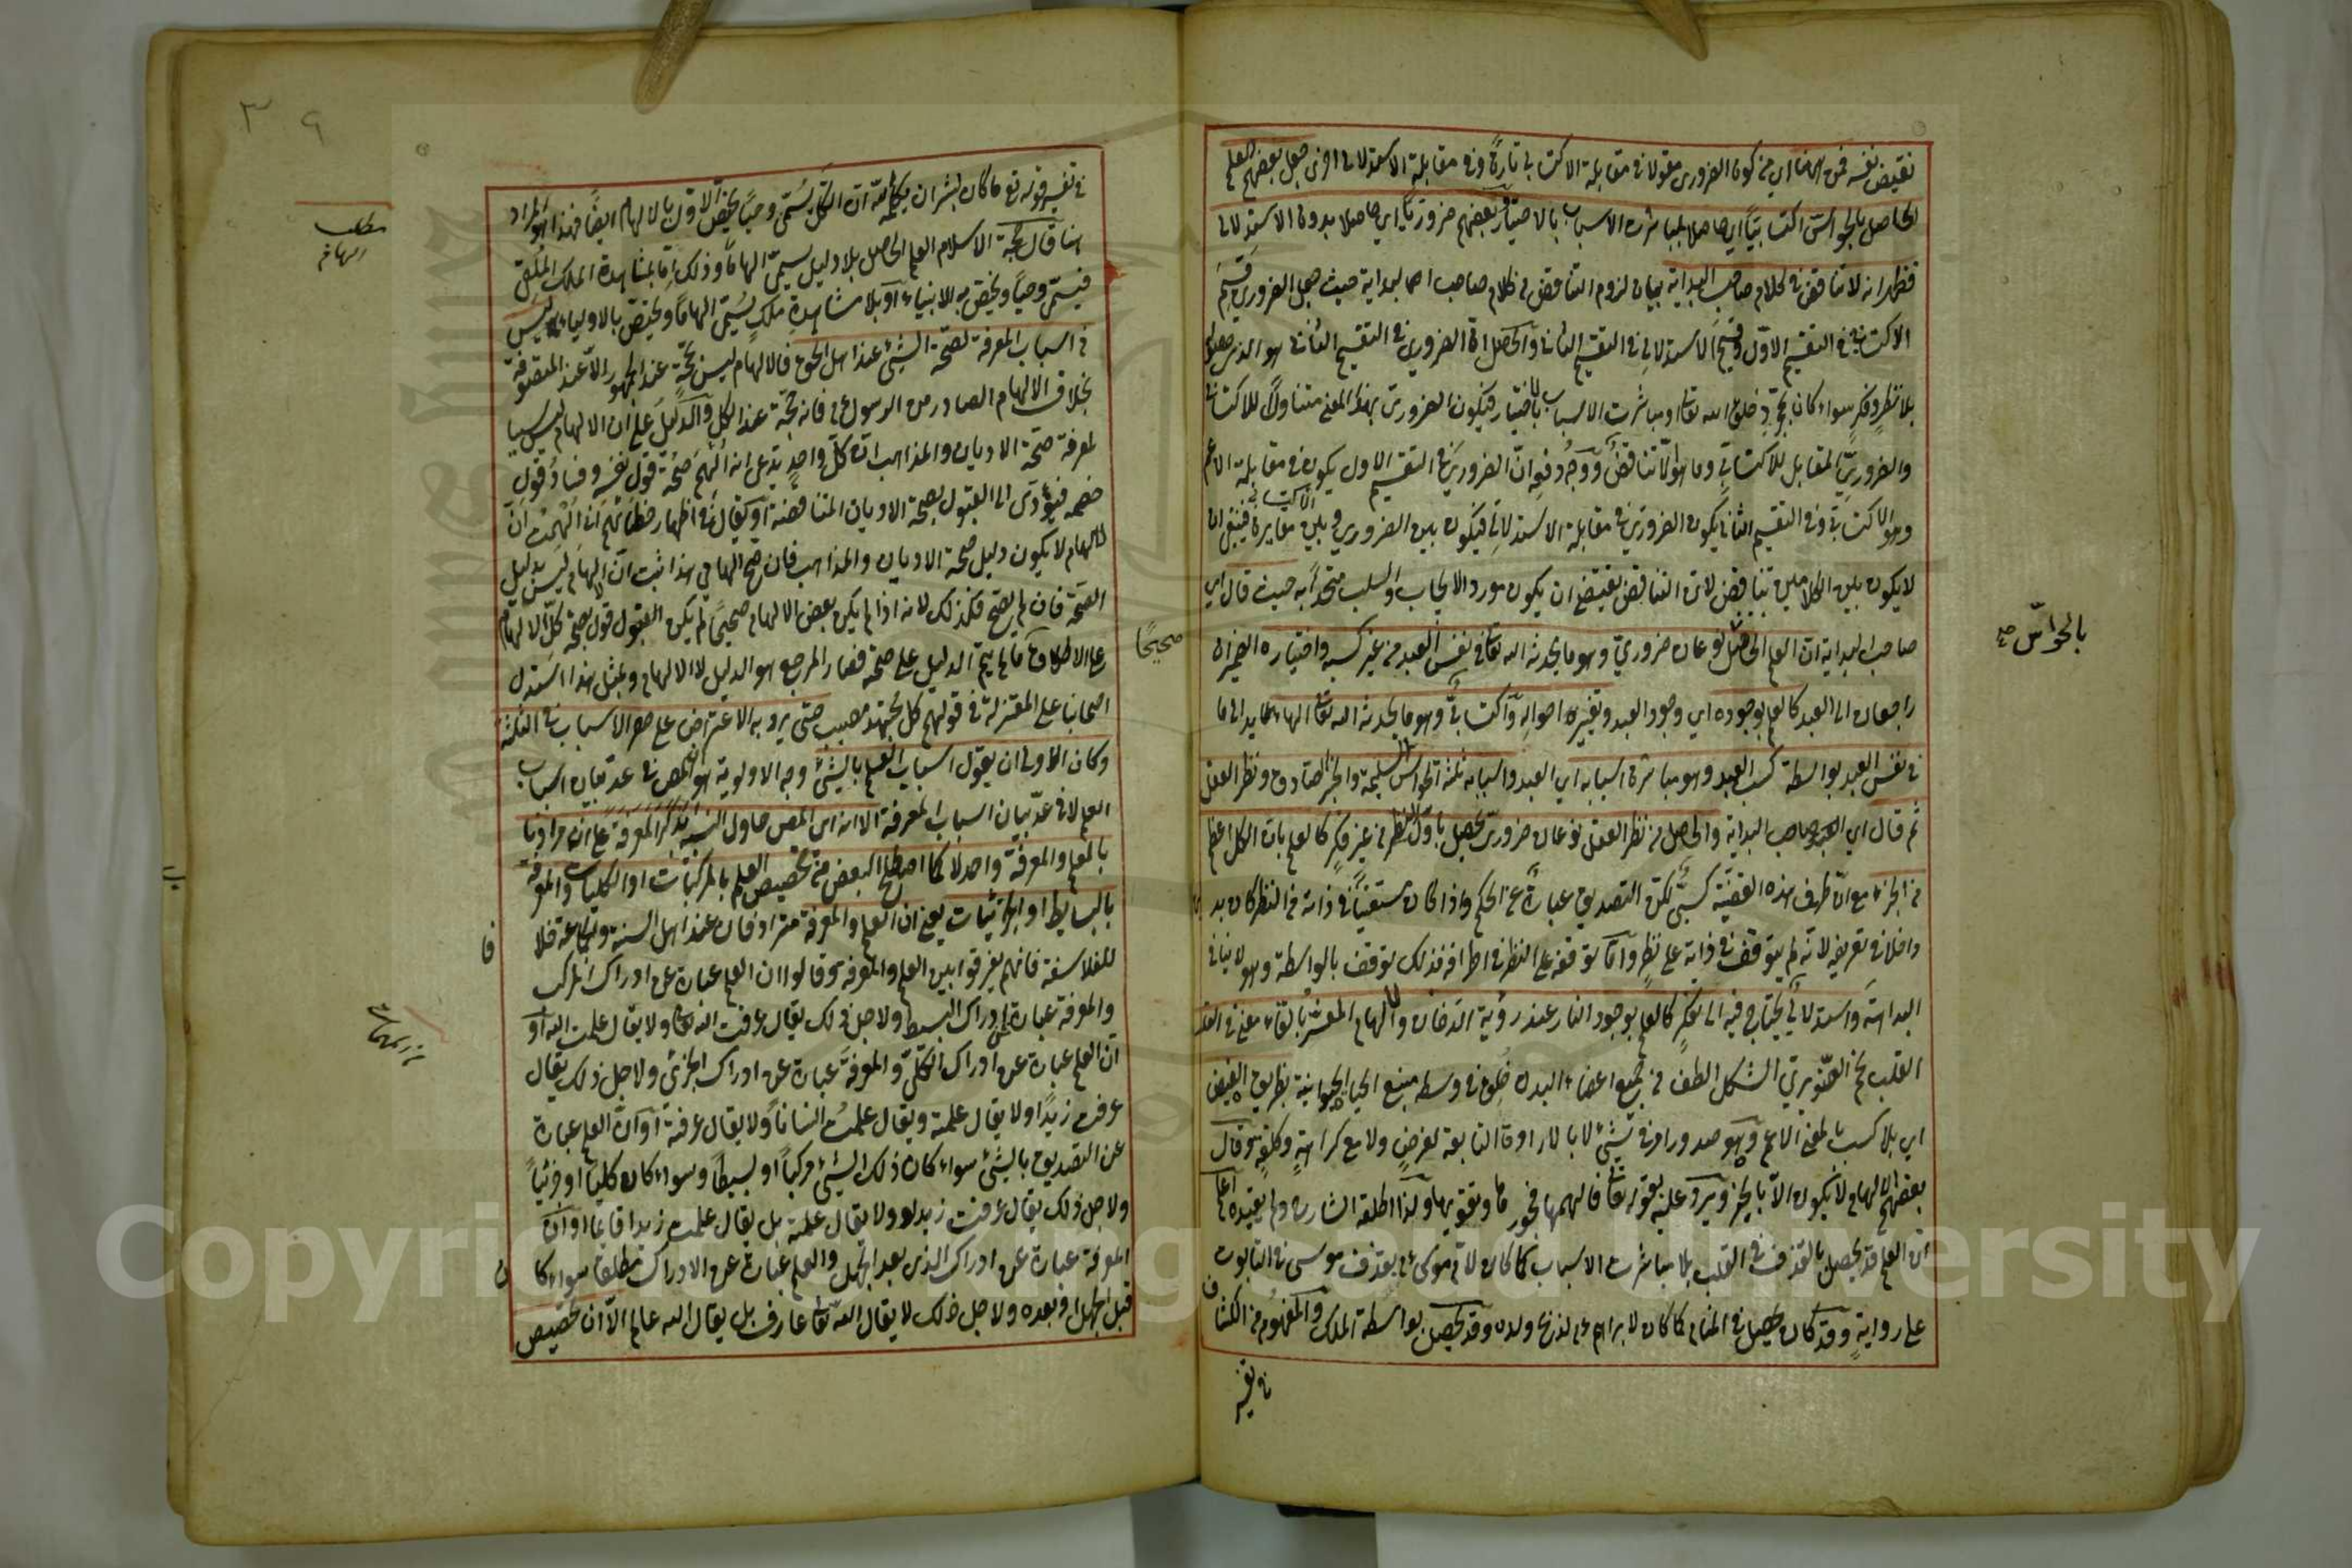 نقيض نفسه فمن ههنا اي من كون الضروري مقولا في مقابلة الاكتسابي تارة وفي مقابلة الاستدلالي اخرى جعل بعضهم العلم
الحاصل بالحواس اكتسابيًا اي حاصلا بمباشرة الاسباب بالاختيار وبعضهم ضروريًا اي حاصلا بدون الاستدلالي
فظهر انه لا تناقض في كلام صاحب البداية بيان لزوم التناقض في كلام صاحب البداية حيث جعل الضروري قسيم
الاكتسابي في التقسيم الاول وقسيم الاستدلالي في التقسيم الثاني والحاصل ان الضروري في التقسيم الثاني هو الذي
بلا نظر وفكر سواء كان بمجرد خلق الله تعا او بمباشرة الاسباب بالاختيار فيكون الضروري بهذا المعنى متناولا للاكتسابي
والضروري المقابل للاكتسابي وما هو الا تناقض ووجه دفعه ان الضروري في التقسيم الاول يكون في مقابلة الاعم
وهو الاكتسابي وفي التقسيم الثاني يكون الضروري في مقابلة الاستدلالي فيكون بين الضروري مغايرة فينبغي ان
لا يكون بين الكلامين تناقض لان التناقض يقتضي ان يكون مورد الايجاب والسلب متحدا به حيث قال اي
صاحب البداية ان العلم الحادث نوعان ضروري وهو ما يحدثه الله تعا في نفس العبد من غير كسبه واختياره الضميران
راجعان الى العبد كالعلم بوجوده اي وجود العبد وتغير احواله واكتسابي وهو ما يحدثه الله تعا
في نفس العبد بواسطة كسب العبد وهو مباشرة اسبابه اي العبد واسبابه ثلثة الحواس السليمة والخبر الصادق ونظر العقل
ثم قال اي صاحب البداية والحاصل من نظر العقل نوعان ضروري يحصل باول النظر من غير فكر كالعلم بان الكل اعظم
من الجزء مع ان طرف هذه القضية كسبي لكن التصديق عبارة عن الحكم واذا كان مستغنيًا في ذاته عن النظر كان
داخلا في تعريفه لانه لم يتوقف في ذاته على نظر واما توقفه على النظر في اطرافه فذلك توقف بالواسطة وهو لا ينافي
البداهة واستدلالي يحتاج فيه الى تفكر كالعلم بوجود النار عند رؤية الدخان والالهام المفسر بالقاء معنى في القلب
القلب لحم الصنوبري الشكل الطف من جميع اعضاء البدن خلق في وسطه منبع الحياة الحيوانية بطريق الفيض
اي بلا كسب بالمعنى الاعم وهو صدور امر من شيء لا بالارادة التابعة لغرض ولا مع كراهة وكلفة وقال
بعضهم الالهام لا يكون الا بالخير ويرد عليه بقوله تعا فالهمها فجورها وتقويها ولذا اطلقه الشارح ولم يقيده اعلم
ان العلم قد يحصل بالقذف في القلب بلا مباشرة الاسباب كما كان لام موسى عم بقذف موسى في التابوت
على رواية وقد كان يحصل في المنام كما كان لابراهيم عم لذبح ولده وقد يحصل بواسطة الملك والمفهوم من الكشاف
في تفسير
بالحواس صح
٣٩
في تفسير قوله تع ما كان لبشر ان يكلمه الله ان الكل يسمى وحيًا يختص الاول بالالهام ايضًا فهذا هو المراد
هنا قال حجة الاسلام العلم الحاصل بلا دليل يسمى الهاما وذلك اما بمشاهدة الملك الملقي
فيسمى وحيًا ويختص به الانبياء او بلا مشاهدة ملك يسمى الهامًا ويختص بالاولياء ليس
من اسباب المعرفة لصحة الشيء عند اهل الحق فالالهام ليس بحجة عند الجمهور الا عند المتصوفة
بخلاف الالهام الصادر من الرسول عم فانه حجة عند الكل والدليل على ان الالهام ليس سببا
لمعرفة صحة الاديان والمذاهب ان كل واحد يدعي انه الهم صحة قول نفسه وفساد قول
خصمه فيؤدي الى القبول بصحة الاديان المتناقضة او يقال في اظهار خطائهم اني الهمت ان
الالهام لا يكون دليل صحة الاديان والمذاهب فان صح الهامي هذا ثبت ان الالهام ليس بدليل
الصحة فان لم يصح فكذلك لانه اذا لم يكن بعض الالهام صحيحًا لم يكن القبول قول بصحة كل الالهام
على الاطلاق ما لم يتم الدليل على صحة فصار المرجع هو الدليل لا الالهام وبمثل هذا استدل
اصحابنا على المعتزلة في قولهم كل مجتهد مصيب حتى يرد به الاعتراض على حصر الاسباب في الثلثة
وكان الاولى ان يقول اسباب العلم بالشيء وجه الاولوية هو ان المص في عد بيان اسباب
العلم لا في عد بيان اسباب المعرفة الا انه اي المص حاول التنبيه بذكر المعرفة على ان مرادنا
بالعلم والمعرفة واحد لا كما اصطلح البعض من تخصيص العلم بالمركبات او الكليات والمعرفة
بالبسايط او الجزئيات يعني ان العلم والمعرفة مترادفان عند اهل السنة والجماعة خلافا
للفلاسفة فانهم يفرقوا بين العلم والمعرفة وقالوا ان العلم عبارة عن ادراك المركب
والمعرفة عبارة عن ادراك البسيط ولاجل ذلك يقال عرفت الله تعا ولا يقال علمت الله او
ان العلم عبارة عن ادراك الكلي والمعرفة عبارة عن ادراك الجزئي ولاجل ذلك يقال
عرفت زيدًا ولا يقال علمته ويقال علمت انسانًا ولا يقال عرفته او ان العلم عبارة
عن التصديق بالشيء سواء كان ذلك الشيء مركبًا او بسيطًا وسواء كان كليًا او جزئيًا
ولاجل ذلك يقال عرفت زيدا ولا يقال علمته بل يقال علمت زيدا قايما او ان
المعرفة عبارة عن ادراك الذي بعد الجهل والعلم عبارة عن الادراك مطلقا سواء كان
قبل الجهل او بعده ولاجل ذلك لا يقال الله تعا عارف بل يقال الله عالم الا ان تخصيص
مطلب
الهام
صحيحًا
Copyright © King Saud University